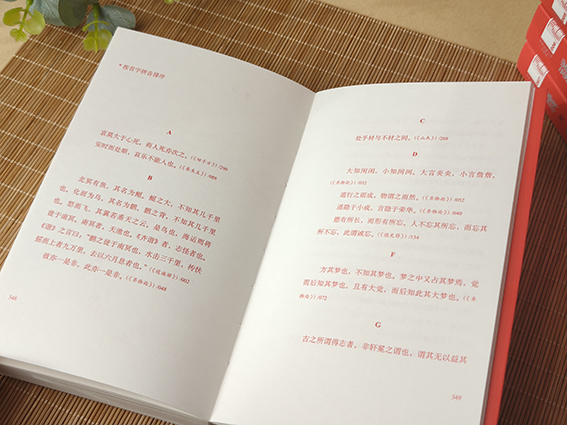 *按首字拼音排序
A
哀莫大于心死，而人死亦次之。(《田子方》)/296
安时而处顺，哀乐不能入也。(《养生主》)/084
B
北冥有鱼，其名为鲲。鲲之大，不知其几千里
也。化而为鸟，其名为鹏。鹏之背，不知其几千里
也。怒而飞，其翼若垂天之云。是鸟也，海运则将
徙于南冥。南冥者，天池也。《齐谐》者，志怪者也。
《谐》之言曰：“鹏之徙于南冥也，水击三千里，抟扶
摇而上者九万里，去以六月息者也。”(《逍遥游》)/002
彼亦一是非，此亦一是非。(《齐物论》)/048
348
C
处乎材与不材之间。(《山木》)/268
D
大知闲闲，小知间间。大言炎炎，小言詹詹。
(《齐物论》)/032
道行之而成，物谓之而然。(《齐物论》)
道隐于小成，言隐于荣华。(《齐物论》)/040
德有所长，而形有所忘。人不忘其所忘，而忘其
所不忘，此谓诚忘。(《德充符》)
F
方其梦也，不知其梦也。梦之中又占其梦焉，觉
而后知其梦也。且有大觉，而后知此其大梦也。(《齐
物论》)/072
G
古之所谓得志者，非轩冕之谓也，谓其无以益其
349